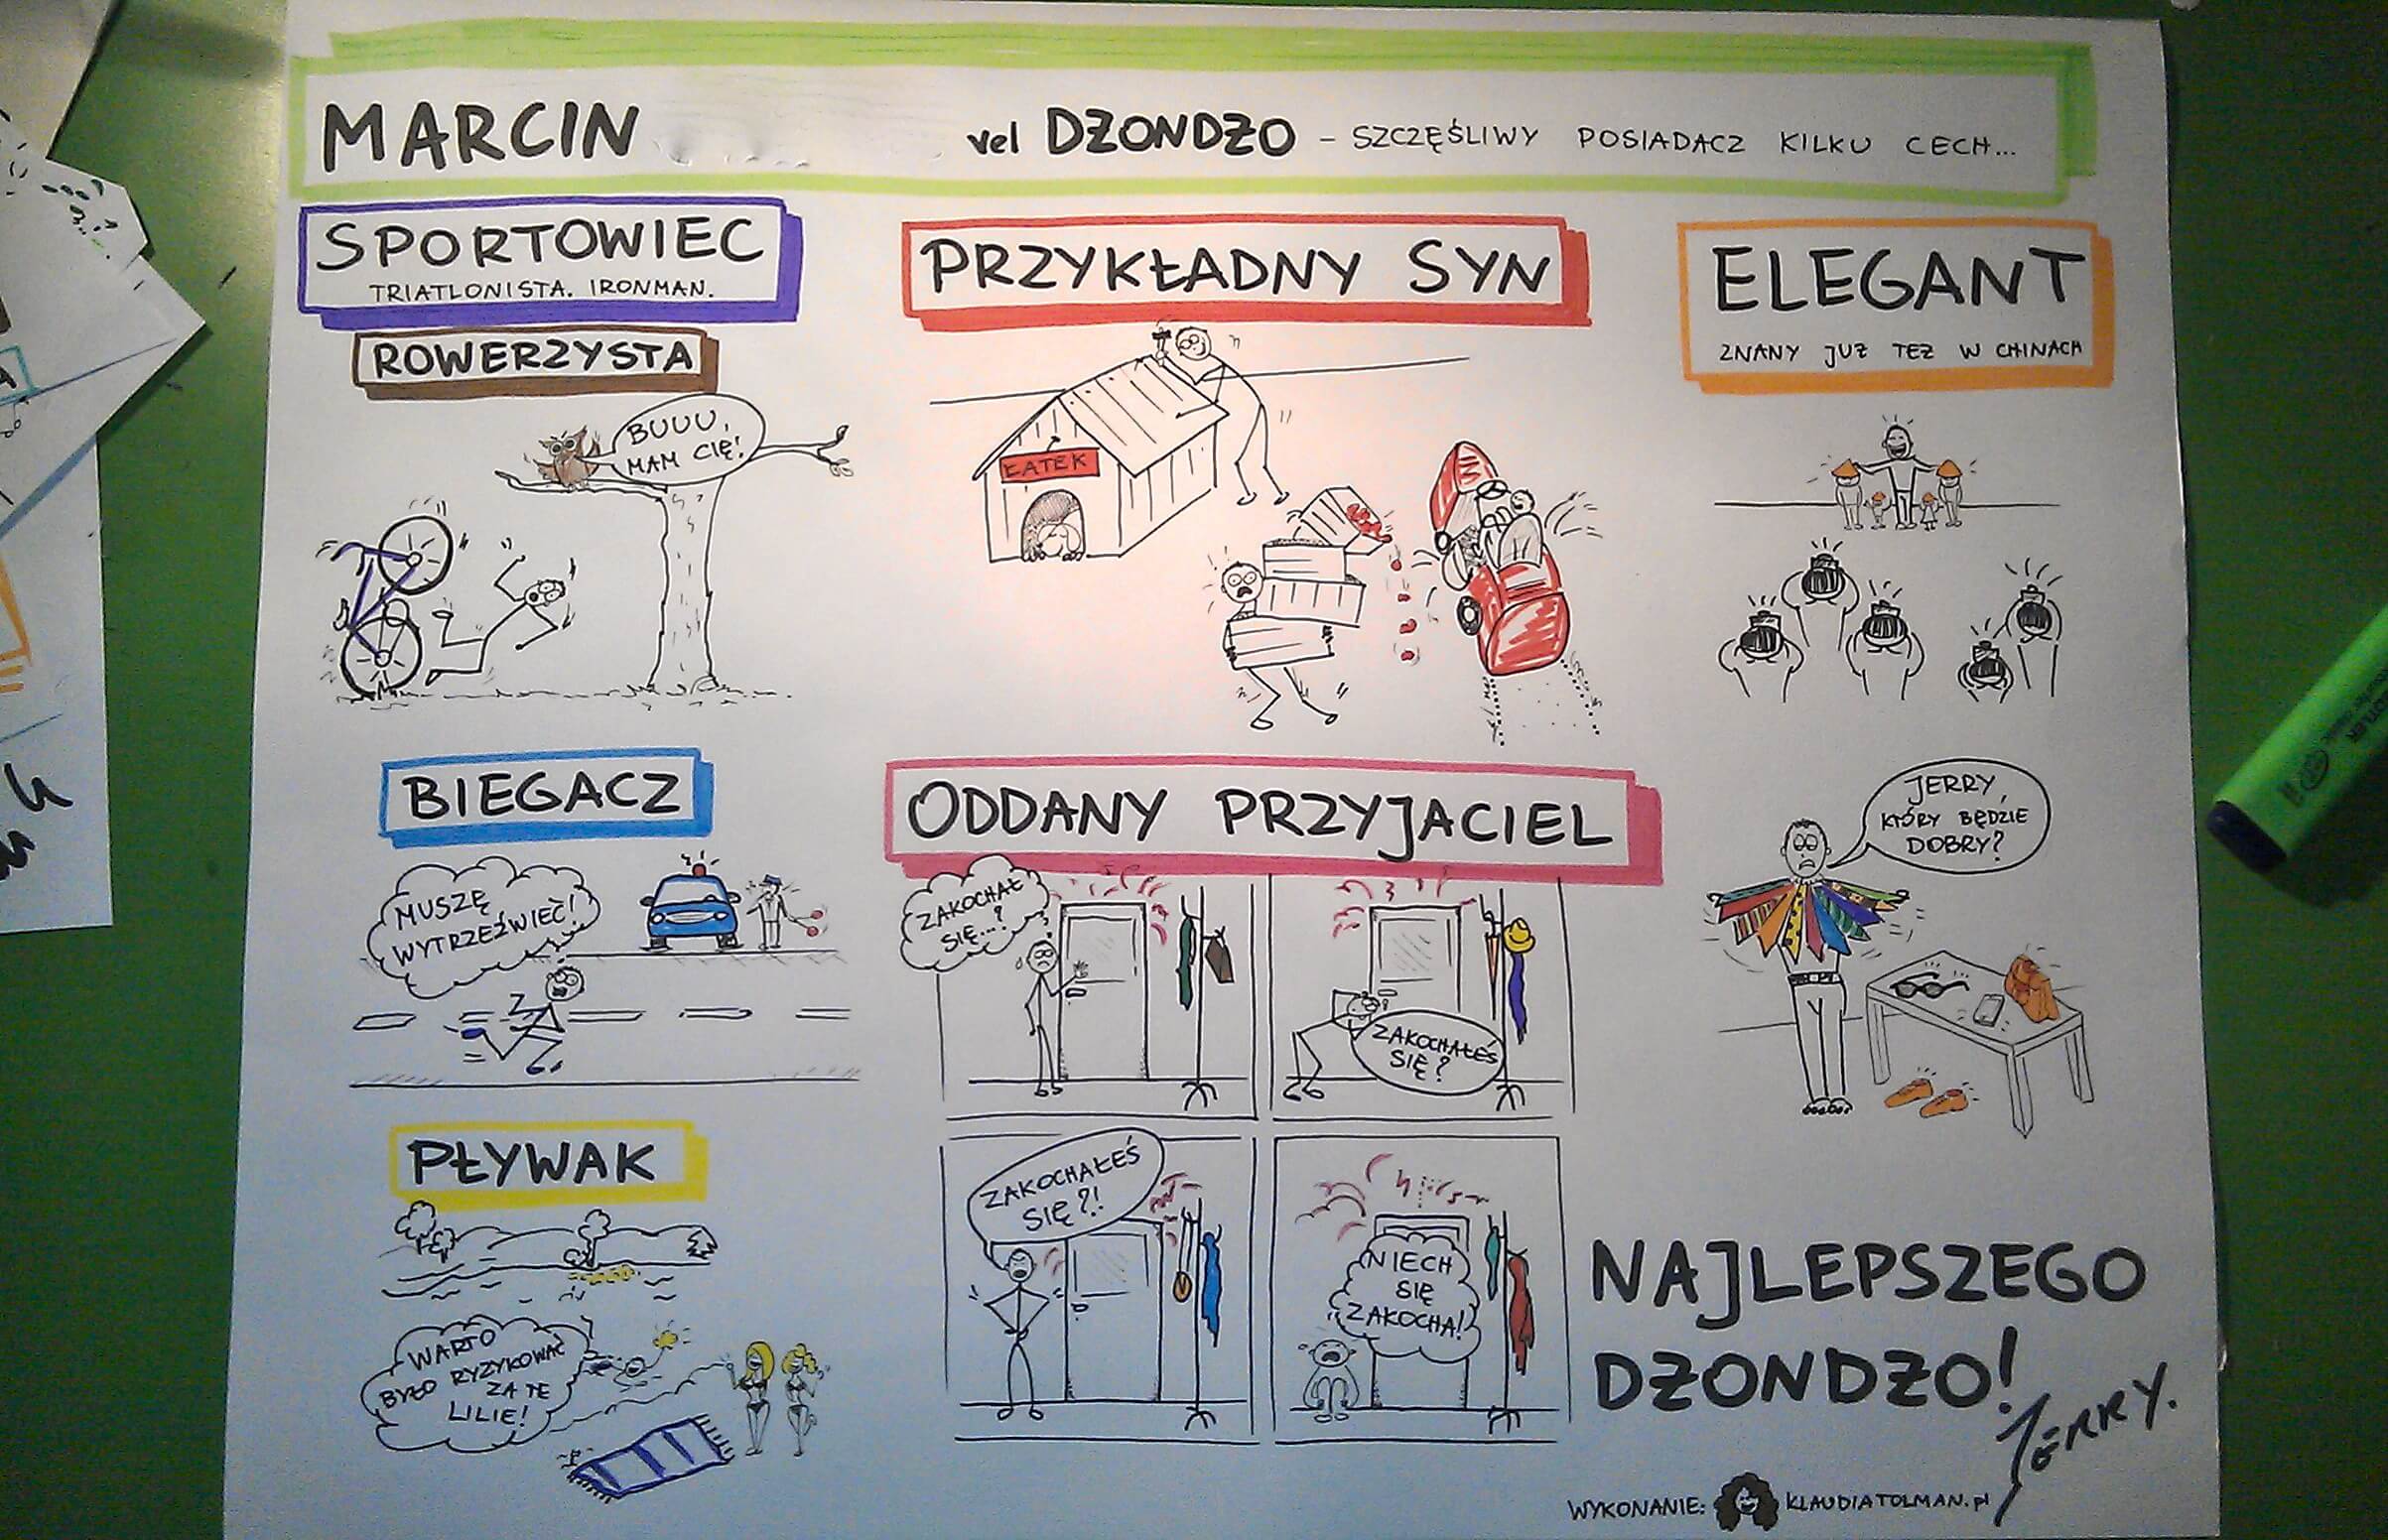 MARCIN vel DZONDZO – SZCZĘŚLIWY POSIADACZ KILKU CECH...
SPORTOWIEC
TRIATLONISTA. IRONMAN.
ROWERZYSTA
BUUU,
MAM CIĘ!
BIEGACZ
MUSZĘ
WYTRZEŹWIEĆ!
PŁYWAK
WARTO
BYŁO RYZYKOWAĆ
ZA TE
LILIE!
PRZYKŁADNY SYN
ŁATEK
ODDANY PRZYJACIEL
ZAKOCHAŁ
SIĘ...?
ZAKOCHAŁEŚ
SIĘ?
ZAKOCHAŁEŚ
SIĘ?!
NIECH
SIĘ
ZAKOCHA!
ELEGANT
ZNANY JUŻ TEŻ W CHINACH
JERRY,
KTÓRY BĘDZIE
DOBRY?
NAJLEPSZEGO
DZONDZO!
JERRY.
WYKONANIE: KLAUDIATOLMAN.pl